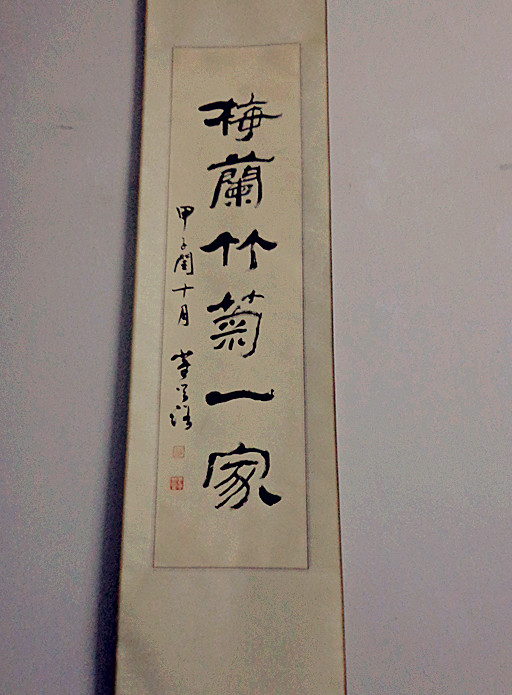 梅蘭竹菊一家
甲子閏十月